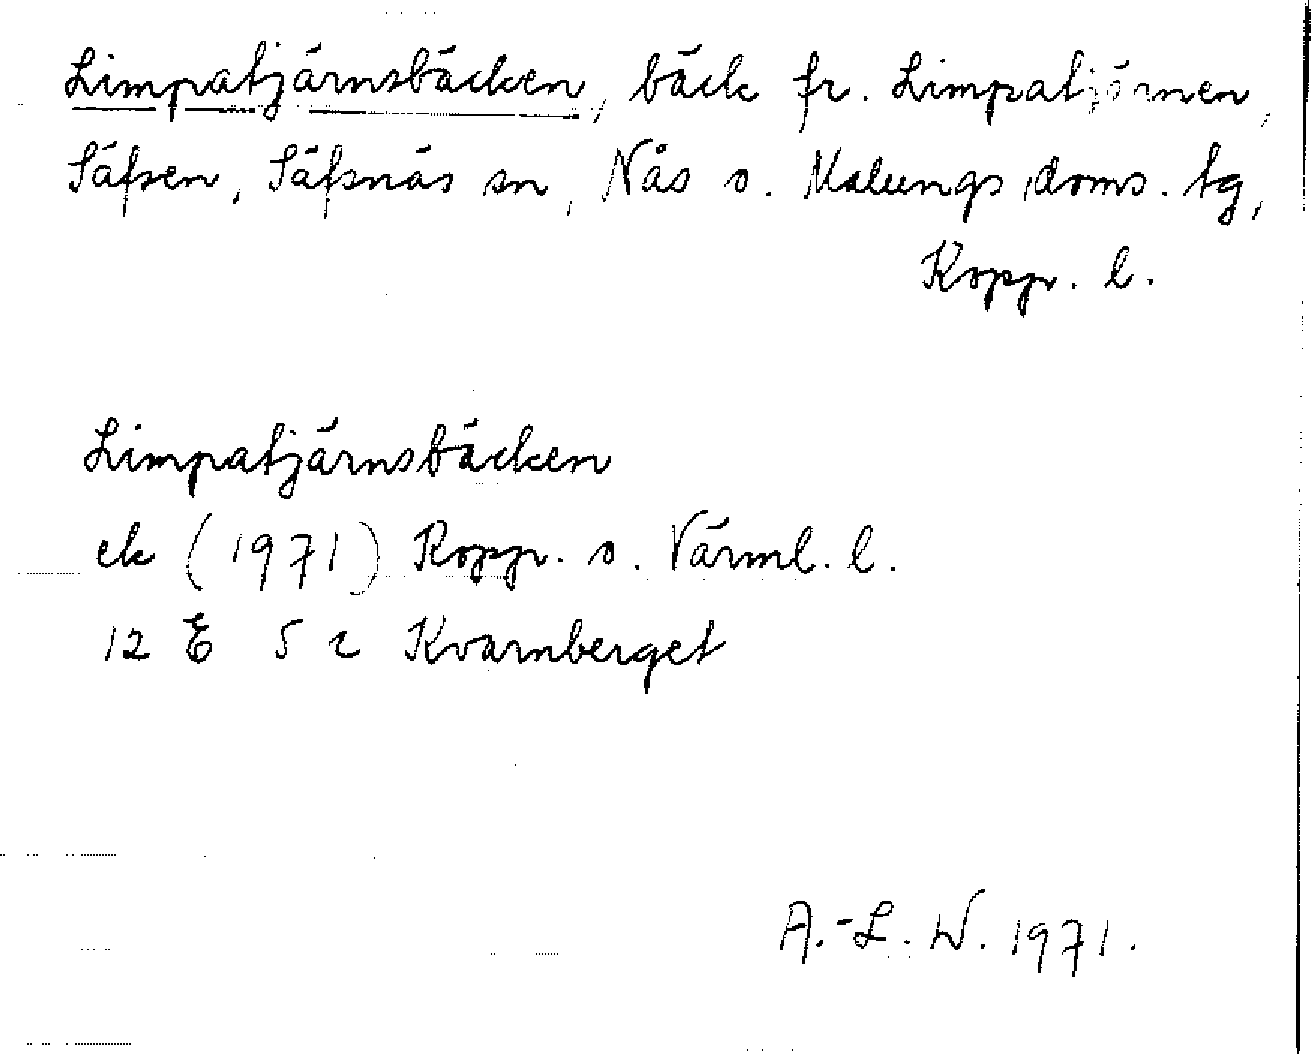 Limpatjärnsbäcken, bäck fr. Limpatjärnen,
Säfsen, Säfsnäs sn, Nås o. Malungs doms. tg,
Kopp. l.
Limpatjärnsbäcken
ek (1971) Kopp. o. Värml. l.
12 E 5 c Kvarnberget
A.-L. W. 1971.